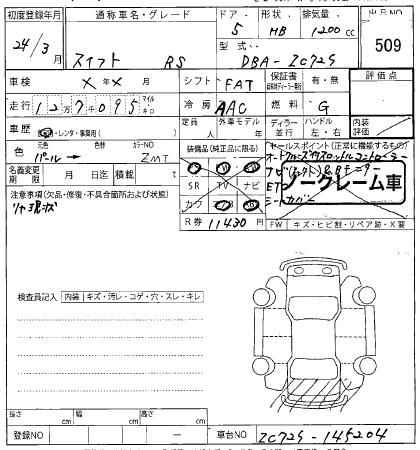 初度登録年月 通称車名・グレード ドア 形状 排気量 出品NO
24/3月 スイフト RS 5 HB 1200cc 509
型式: DBA-ZC72S
車検 X年X月 シフト FAT 保証書 有・無 評価点
走行 127095 マイル・キロ 冷房 AAC 燃料 G
定員 人 外車モデル 年 ディーラー 並行 ハンドル 左・右 内装評価
車歴 ・レンタ・事業用( )
色 元色 パール→ 色替 カラーNO ZMT
装備品(純正品に限る) セールスポイント(正常に機能するもの)
名義変更期限 月 日迄 積載 t
SR TV ナビ
ノークレーム車
カワ
注意事項(欠品・修復・不具合箇所および状態)
R券 11430円
FW キズ・ヒビ割・リペア跡・X要
検査員記入 内装 キズ・汚レ・コゲ・穴・スレ・キレ
長さ cm 幅 cm 高さ cm
登録NO ー 車台NO ZC72S-145204